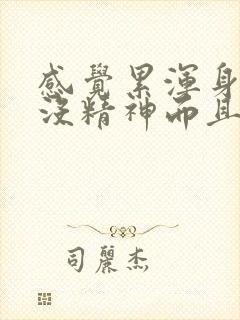 感覺累渾身
沒精神而且
司麗杰